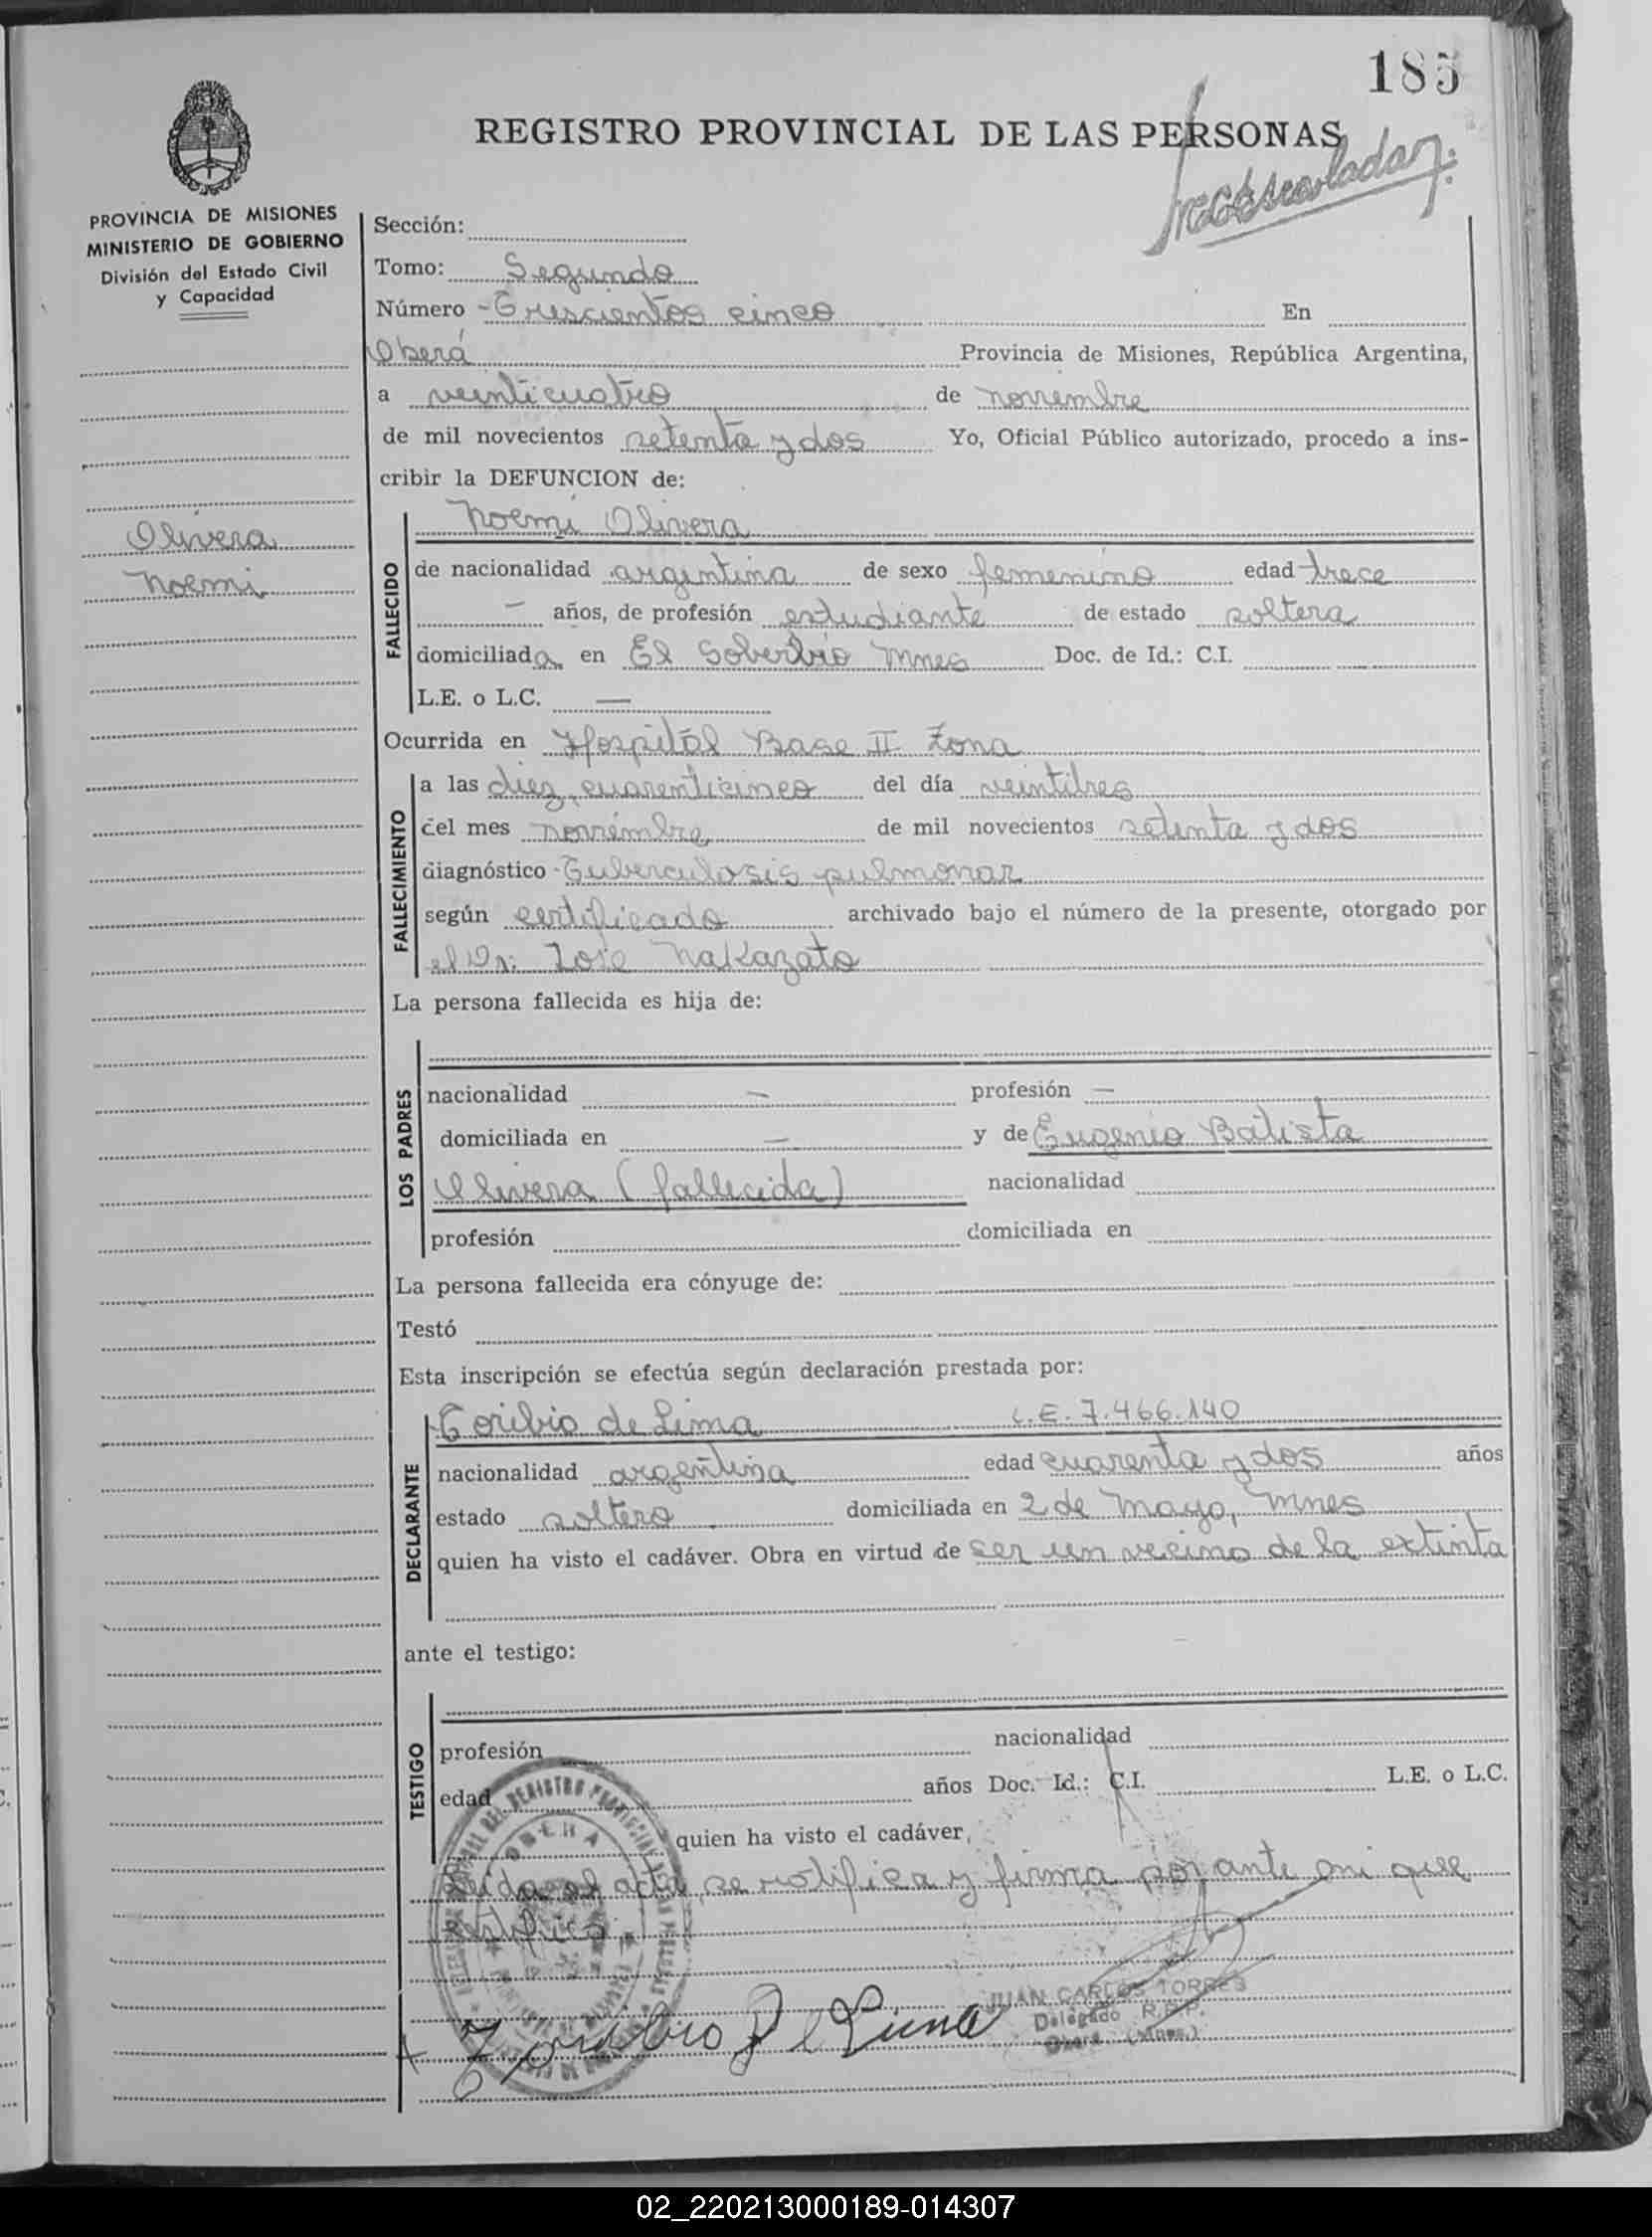 185
REGISTRO PROVINCIAL DE LAS PERSONAS
PROVINCIA DE MISIONES
MINISTERIO DE GOBIERNO
División del Estado Civil
y Capacidad
Sección:
Tomo: Segundo
Número Trescientos cinco En
Oberá Provincia de Misiones, República Argentina,
a veinticuatro de noviembre
de mil novecientos setenta y dos Yo, Oficial Público autorizado, procedo a ins-
cribir la DEFUNCION de:
Olivera
Noemi
Noemi Olivera
FALLECIDO
de nacionalidad argentina de sexo femenino edad trece
— años, de profesión estudiante de estado soltera
domiciliada en El Soberbio Mnes Doc. de Id.: C.I.
L.E. o L.C. —
Ocurrida en Hospital Base II Zona
FALLECIMIENTO
a las diez, cuarenticinco del día veintitres
del mes noviembre de mil novecientos setenta y dos
diagnóstico Tuberculosis pulmonar
según certificado archivado bajo el número de la presente, otorgado por
el Dr: José Nakazato
La persona fallecida es hija de:
LOS PADRES
nacionalidad — profesión —
domiciliada en — y de Eugenia Batista
Olivera (fallecida) nacionalidad
profesión domiciliada en
La persona fallecida era cónyuge de:
Testó
Esta inscripción se efectúa según declaración prestada por:
DECLARANTE
Toribio de Lima L.E. 7.466.140
nacionalidad argentina edad cuarenta y dos años
estado soltero domiciliada en 2 de Mayo, Mnes
quien ha visto el cadáver. Obra en virtud de ser un vecino de la extinta
ante el testigo:
TESTIGO
profesión nacionalidad
edad años Doc. Id.: C.I. L.E. o L.C.
quien ha visto el cadáver,
Leida el acta, se ratifica y firma por ante mi que
certifico.
Toribio De Lima
JUAN CARLOS TORRES
Delegado R.P.P.
Oberá (Mnes.)
02_220213000189-014307